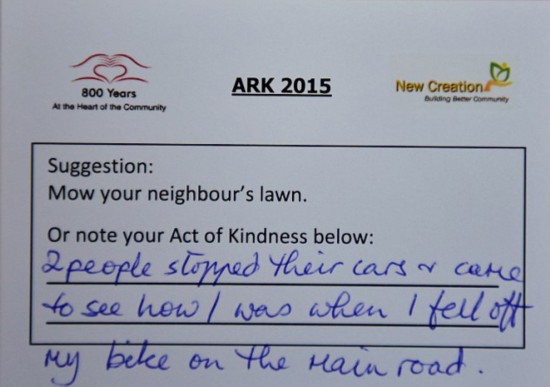 800 Years
At the Heart of the Community
ARK 2015
New Creation
Building Better Community
Suggestion:
Mow your neighbour's lawn.
Or note your Act of Kindness below:
2 people stopped their cars & came
to see how I was when I fell off
my bike on the main road.